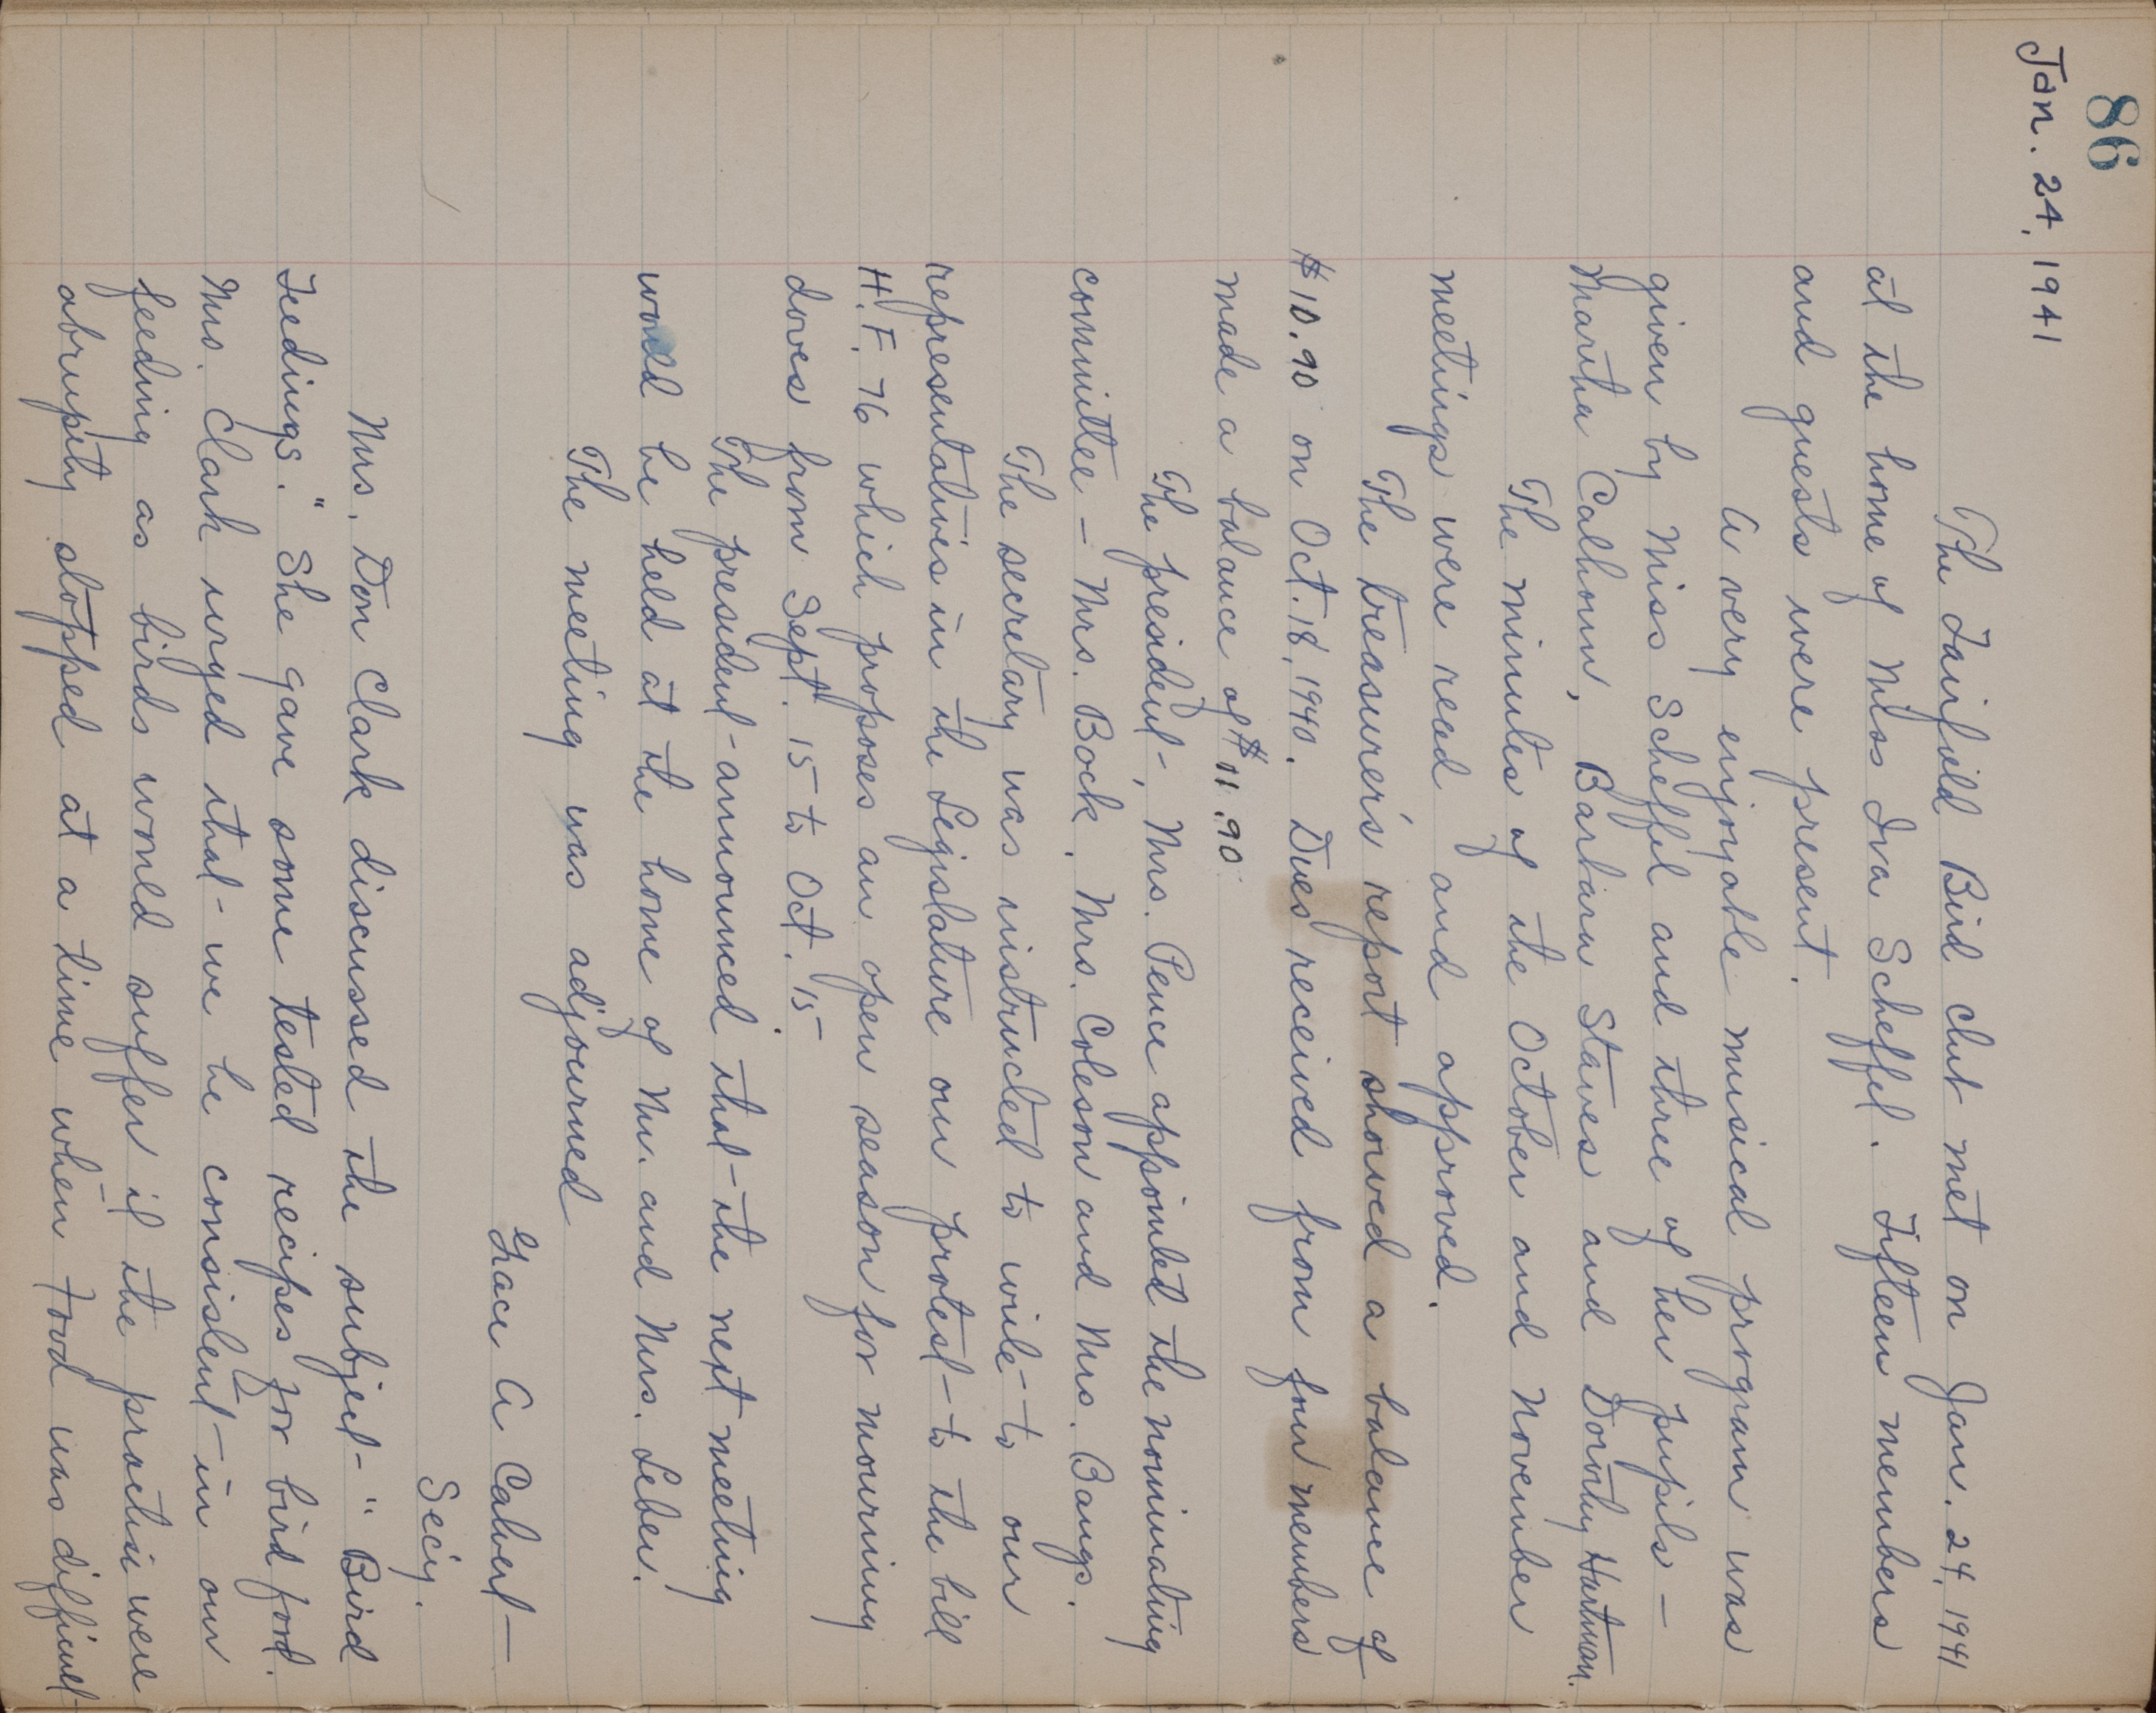 86
Jan. 24, 1941
The Fairfield Bird Club met on Jan. 24, 1941
at the home of Miss Iva Scheffel. Fifteen members
and guests were present.
A very enjoyable musical program was
given by Miss Scheffel and three of her pupils —
Martha Calhoun, Barbara Staves and Dorothy Hartman.
The minutes of the October and November
meetings were read and approved.
The treasurer's report showed a balance of
$10.90 on Oct. 18, 1940. Dues received from four members
made a balance of $11.90.
The president, Mrs. Pence appointed the nominating
committee — Mrs. Bock, Mrs. Coleson and Mrs. Bangs.
The secretary was instructed to write to our
representatives in the Legislature our protest to the bill
H.F. 76 which proposes an open season for mourning
doves from Sept. 15 to Oct. 15.
The president announced that the next meeting
would be held at the home of Mr. and Mrs. Leber.
The meeting was adjourned
Grace A Calvert
Sec'y.
Mrs. Don Clark discussed the subject "Bird
Feedings." She gave some tested recipes for bird food.
Mrs. Clark urged that we be consistent in our
feeding as birds would suffer if the practice were
abruptly stopped at a time when food was difficult